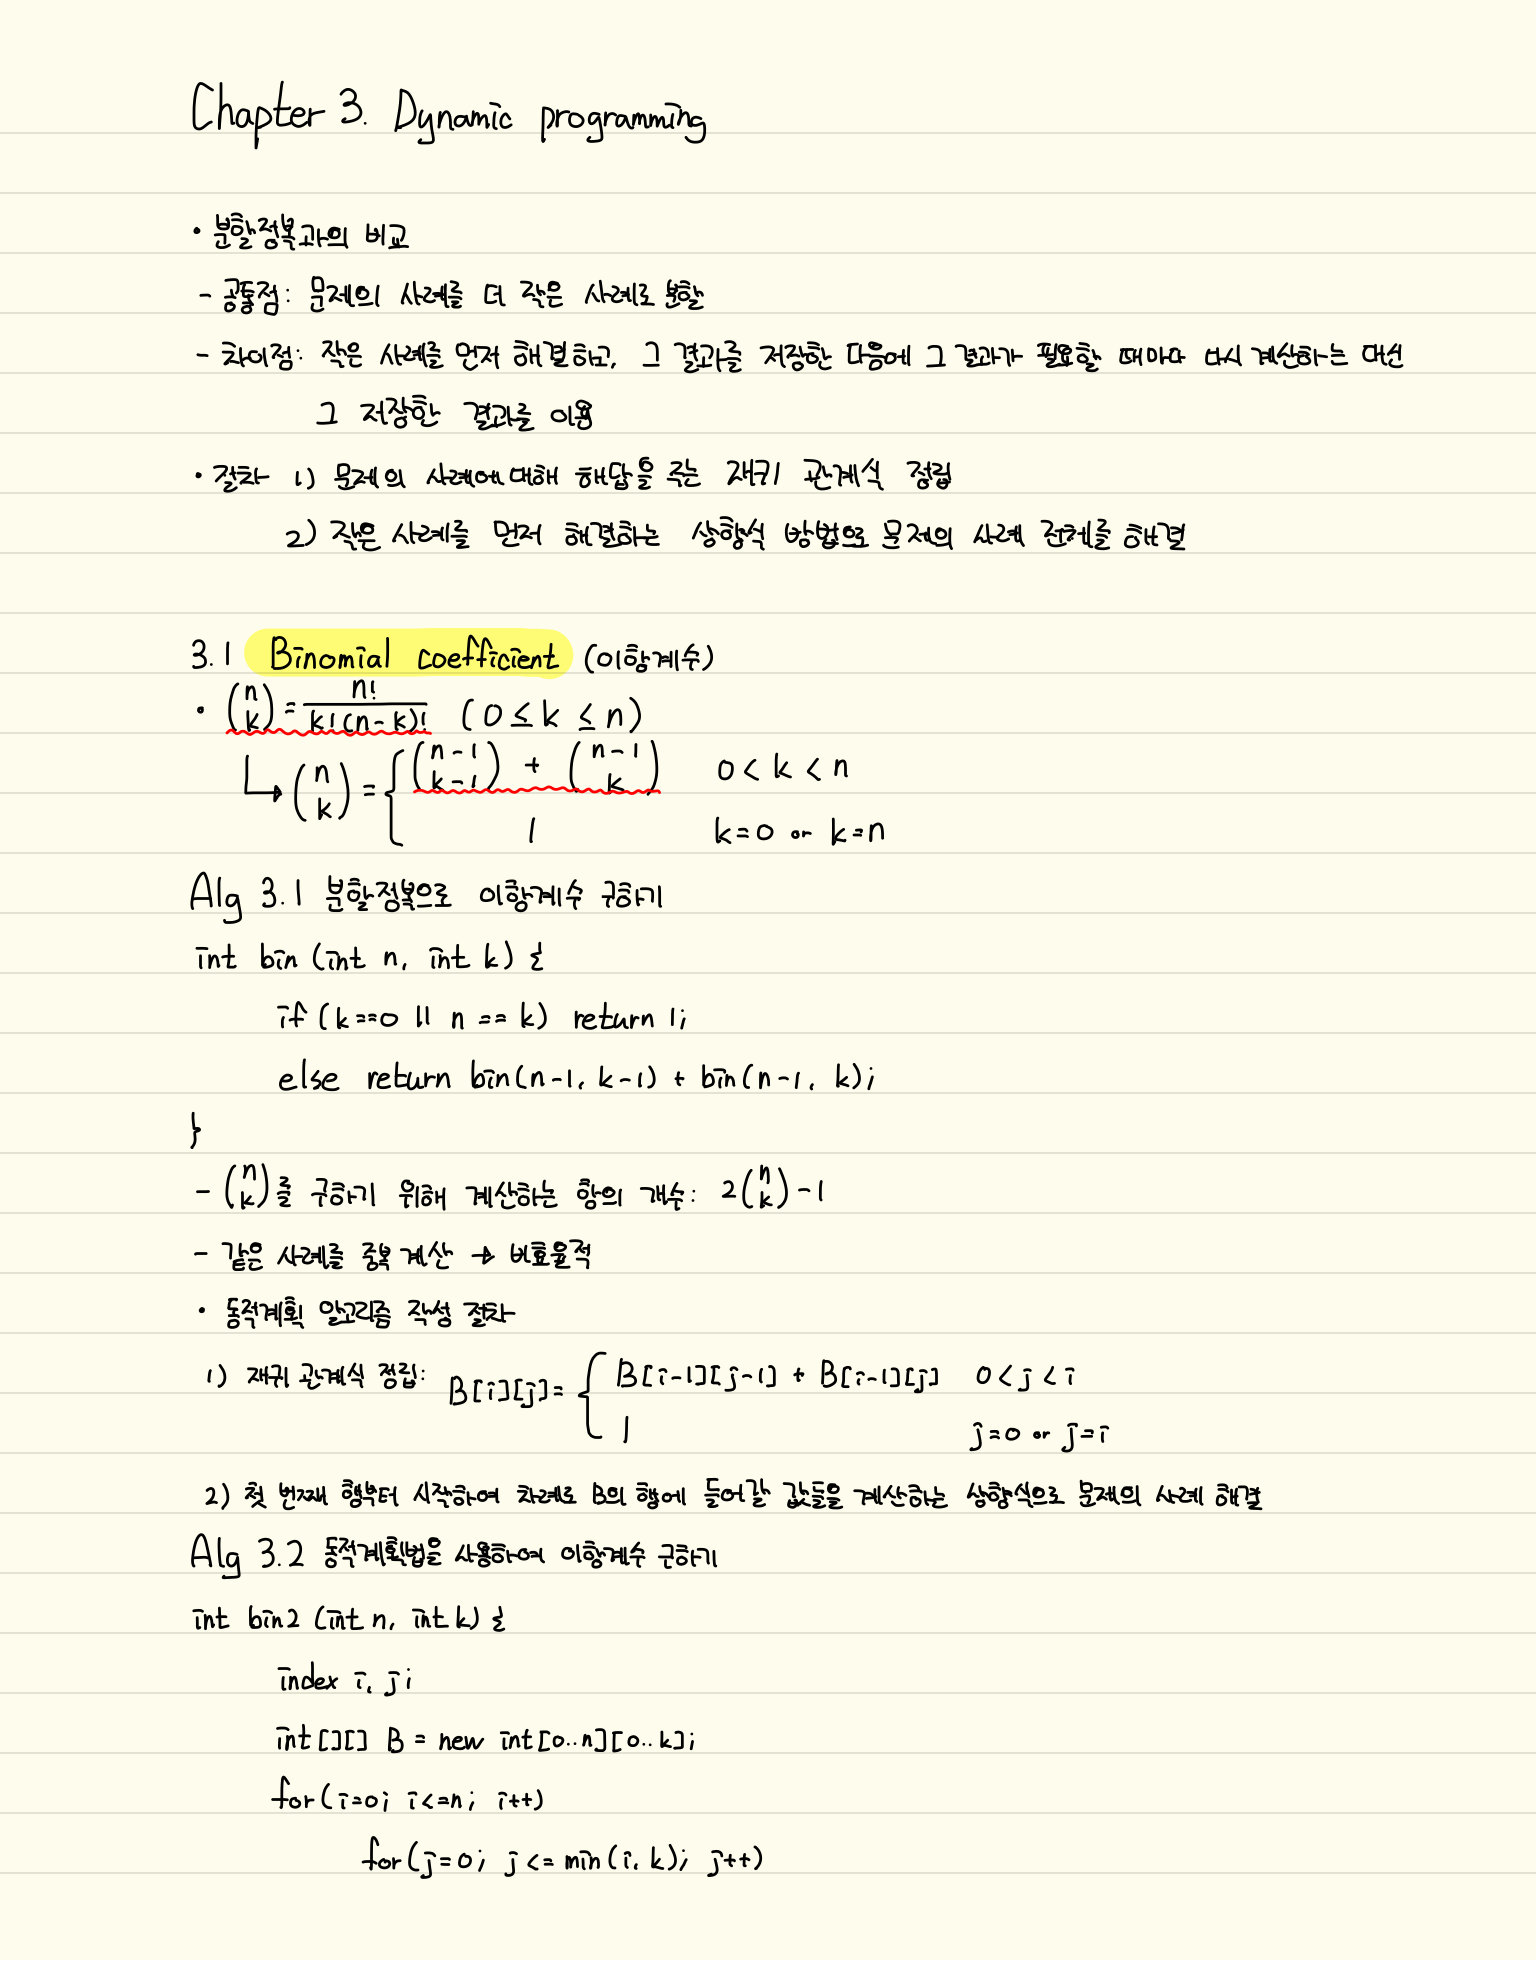 Chapter 3. Dynamic programming
• 분할정복과의 비교
- 공통점: 문제의 사례를 더 작은 사례로 분할
- 차이점: 작은 사례를 먼저 해결하고, 그 결과를 저장한 다음에 그 결과가 필요할 때마다 다시 계산하는 대신
그 저장한 결과를 이용
• 절차 1) 문제의 사례에 대해 해답을 주는 재귀 관계식 정립
2) 작은 사례를 먼저 해결하는 상향식 방법으로 문제의 사례 전체를 해결
3.1 Binomial coefficient (이항계수)
• (n k) = n! / k!(n-k)! (0 ≤ k ≤ n)
↳ (n k) = { (n-1 k-1) + (n-1 k) 0 < k < n
1 k=0 or k=n
Alg 3.1 분할정복으로 이항계수 구하기
int bin (int n, int k) {
if (k==0 || n == k) return 1;
else return bin(n-1, k-1) + bin(n-1, k);
}
- (n k)를 구하기 위해 계산하는 항의 개수: 2(n k)-1
- 같은 사례를 중복 계산 → 비효율적
• 동적계획 알고리즘 작성 절차
1) 재귀 관계식 정립: B[i][j] = { B[i-1][j-1] + B[i-1][j] 0 < j < i
1 j=0 or j=i
2) 첫 번째 행부터 시작하여 차례로 B의 행에 들어갈 값들을 계산하는 상향식으로 문제의 사례 해결
Alg 3.2 동적계획법을 사용하여 이항계수 구하기
int bin2 (int n, int k) {
index i, j;
int[][] B = new int[0..n][0..k];
for (i=0; i<=n; i++)
for (j=0; j <= min(i, k); j++)